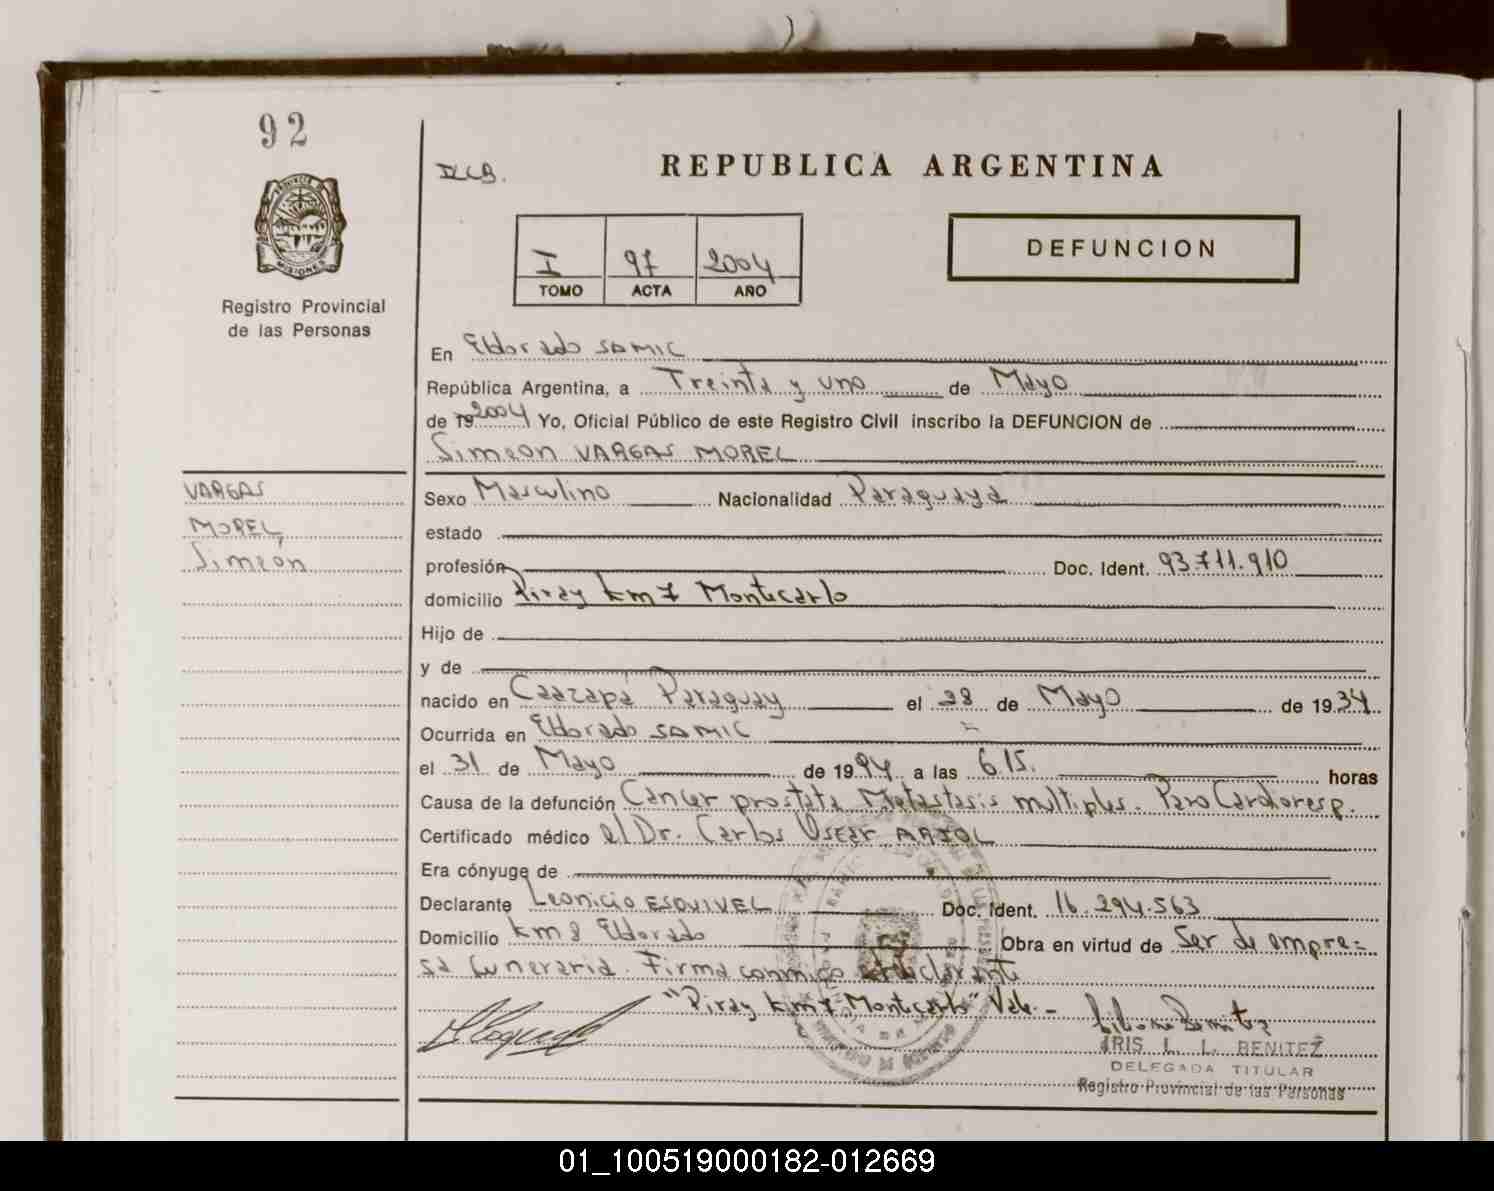 92
PROVINCIA DE
MISIONES
Registro Provincial
de las Personas
REPUBLICA ARGENTINA
I 97 2004
TOMO ACTA AÑO
DEFUNCION
En Eldorado SAMIC
República Argentina, a Treinta y uno de Mayo
de 19 2004 Yo, Oficial Público de este Registro Civil inscribo la DEFUNCION de
Simeon VARGAS MOREL
VARGAS
MOREL,
Simeón
Sexo Masculino Nacionalidad Paraguaya
estado
profesión Doc. Ident. 93.711.910
domicilio Piray km 7 Montecarlo
Hijo de
y de
nacido en Caazapá Paraguay el 28 de Mayo de 1934
Ocurrida en Eldorado SAMIC
el 31 de Mayo de 1994 a las 6.15. horas
Causa de la defunción Cancer prostata Metastasis multiples. Paro Cardioresp.
Certificado médico el Dr. Carlos
Era cónyuge de
Declarante Leonicio ESQUIVEL Doc. Ident. 16.294.563
Domicilio km 8 Eldorado Obra en virtud de Ser de empre=
sa funeraria. Firma conmigo declarante
"Piray km 7 Montecarlo" Vale.-
IRIS L. L. BENITEZ
DELEGADA TITULAR
Registro Provincial de las Personas
01_100519000182-012669